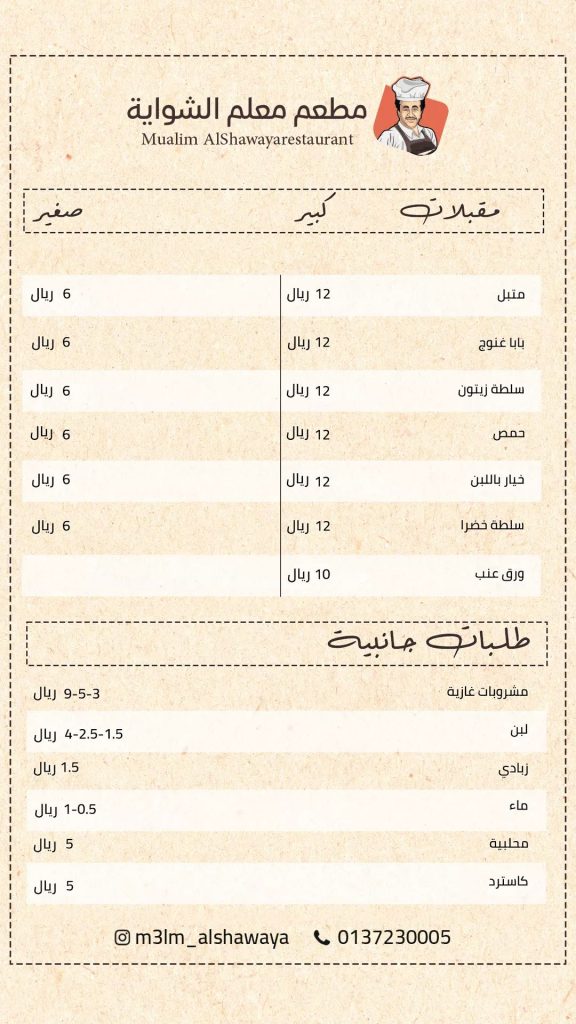 مطعم معلم الشواية
Mualim AlShawayarestaurant
مقبلات كبير صغير
متبل 12 ريال 6 ريال
بابا غنوج 12 ريال 6 ريال
سلطة زيتون 12 ريال 6 ريال
حمص 12 ريال 6 ريال
خيار باللبن 12 ريال 6 ريال
سلطة خضرا 12 ريال 6 ريال
ورق عنب 10 ريال
طلبات جانبية
مشروبات غازية 9-5-3 ريال
لبن 4-2.5-1.5 ريال
زبادي 1.5 ريال
ماء 1-0.5 ريال
محلبية 5 ريال
كاسترد 5 ريال
m3lm_alshawaya 0137230005